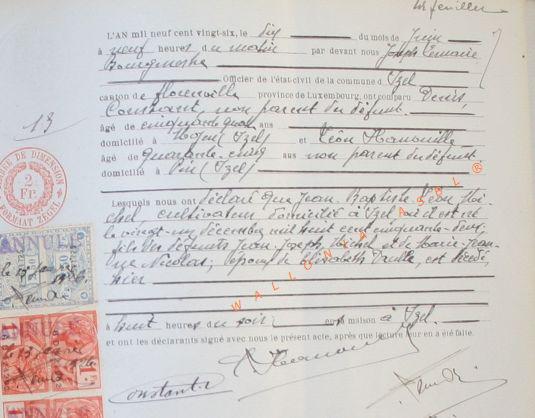 L'AN mil neuf cent vingt-six, le dix du mois de Juin
à neuf heures du matin par devant nous Joseph Lemaire
Bourgmestre
Officier de l'état civil de la commune d'Izel
canton de Florenville province de Luxembourg, ont comparu Denis,
Constant, non parent du défunt
âgé de cinquante quatre ans
domicilié à Moyen (Izel) et Léon
âgé de quarante-cinq ans non parent du défunt
domicilié à Pin (Izel)
Lesquels nous ont déclaré que Jean Baptiste Léon
cultivateur domicilié à Izel où il est né
le vingt-un décembre mil huit cent cinquante-deux,
fils des défunts Jean Joseph, et de Marie-Jean-
ne Nicolas; époux de Elisabeth est décédé
hier
à huit heures du soir en sa maison à Izel
et ont les déclarants signé avec nous le présent acte, après que lecture leur en a été faite.
Constant
13
DE DIMENSION
2
FR
FORMAT
ANNULE
WALLONIA ASBL ®